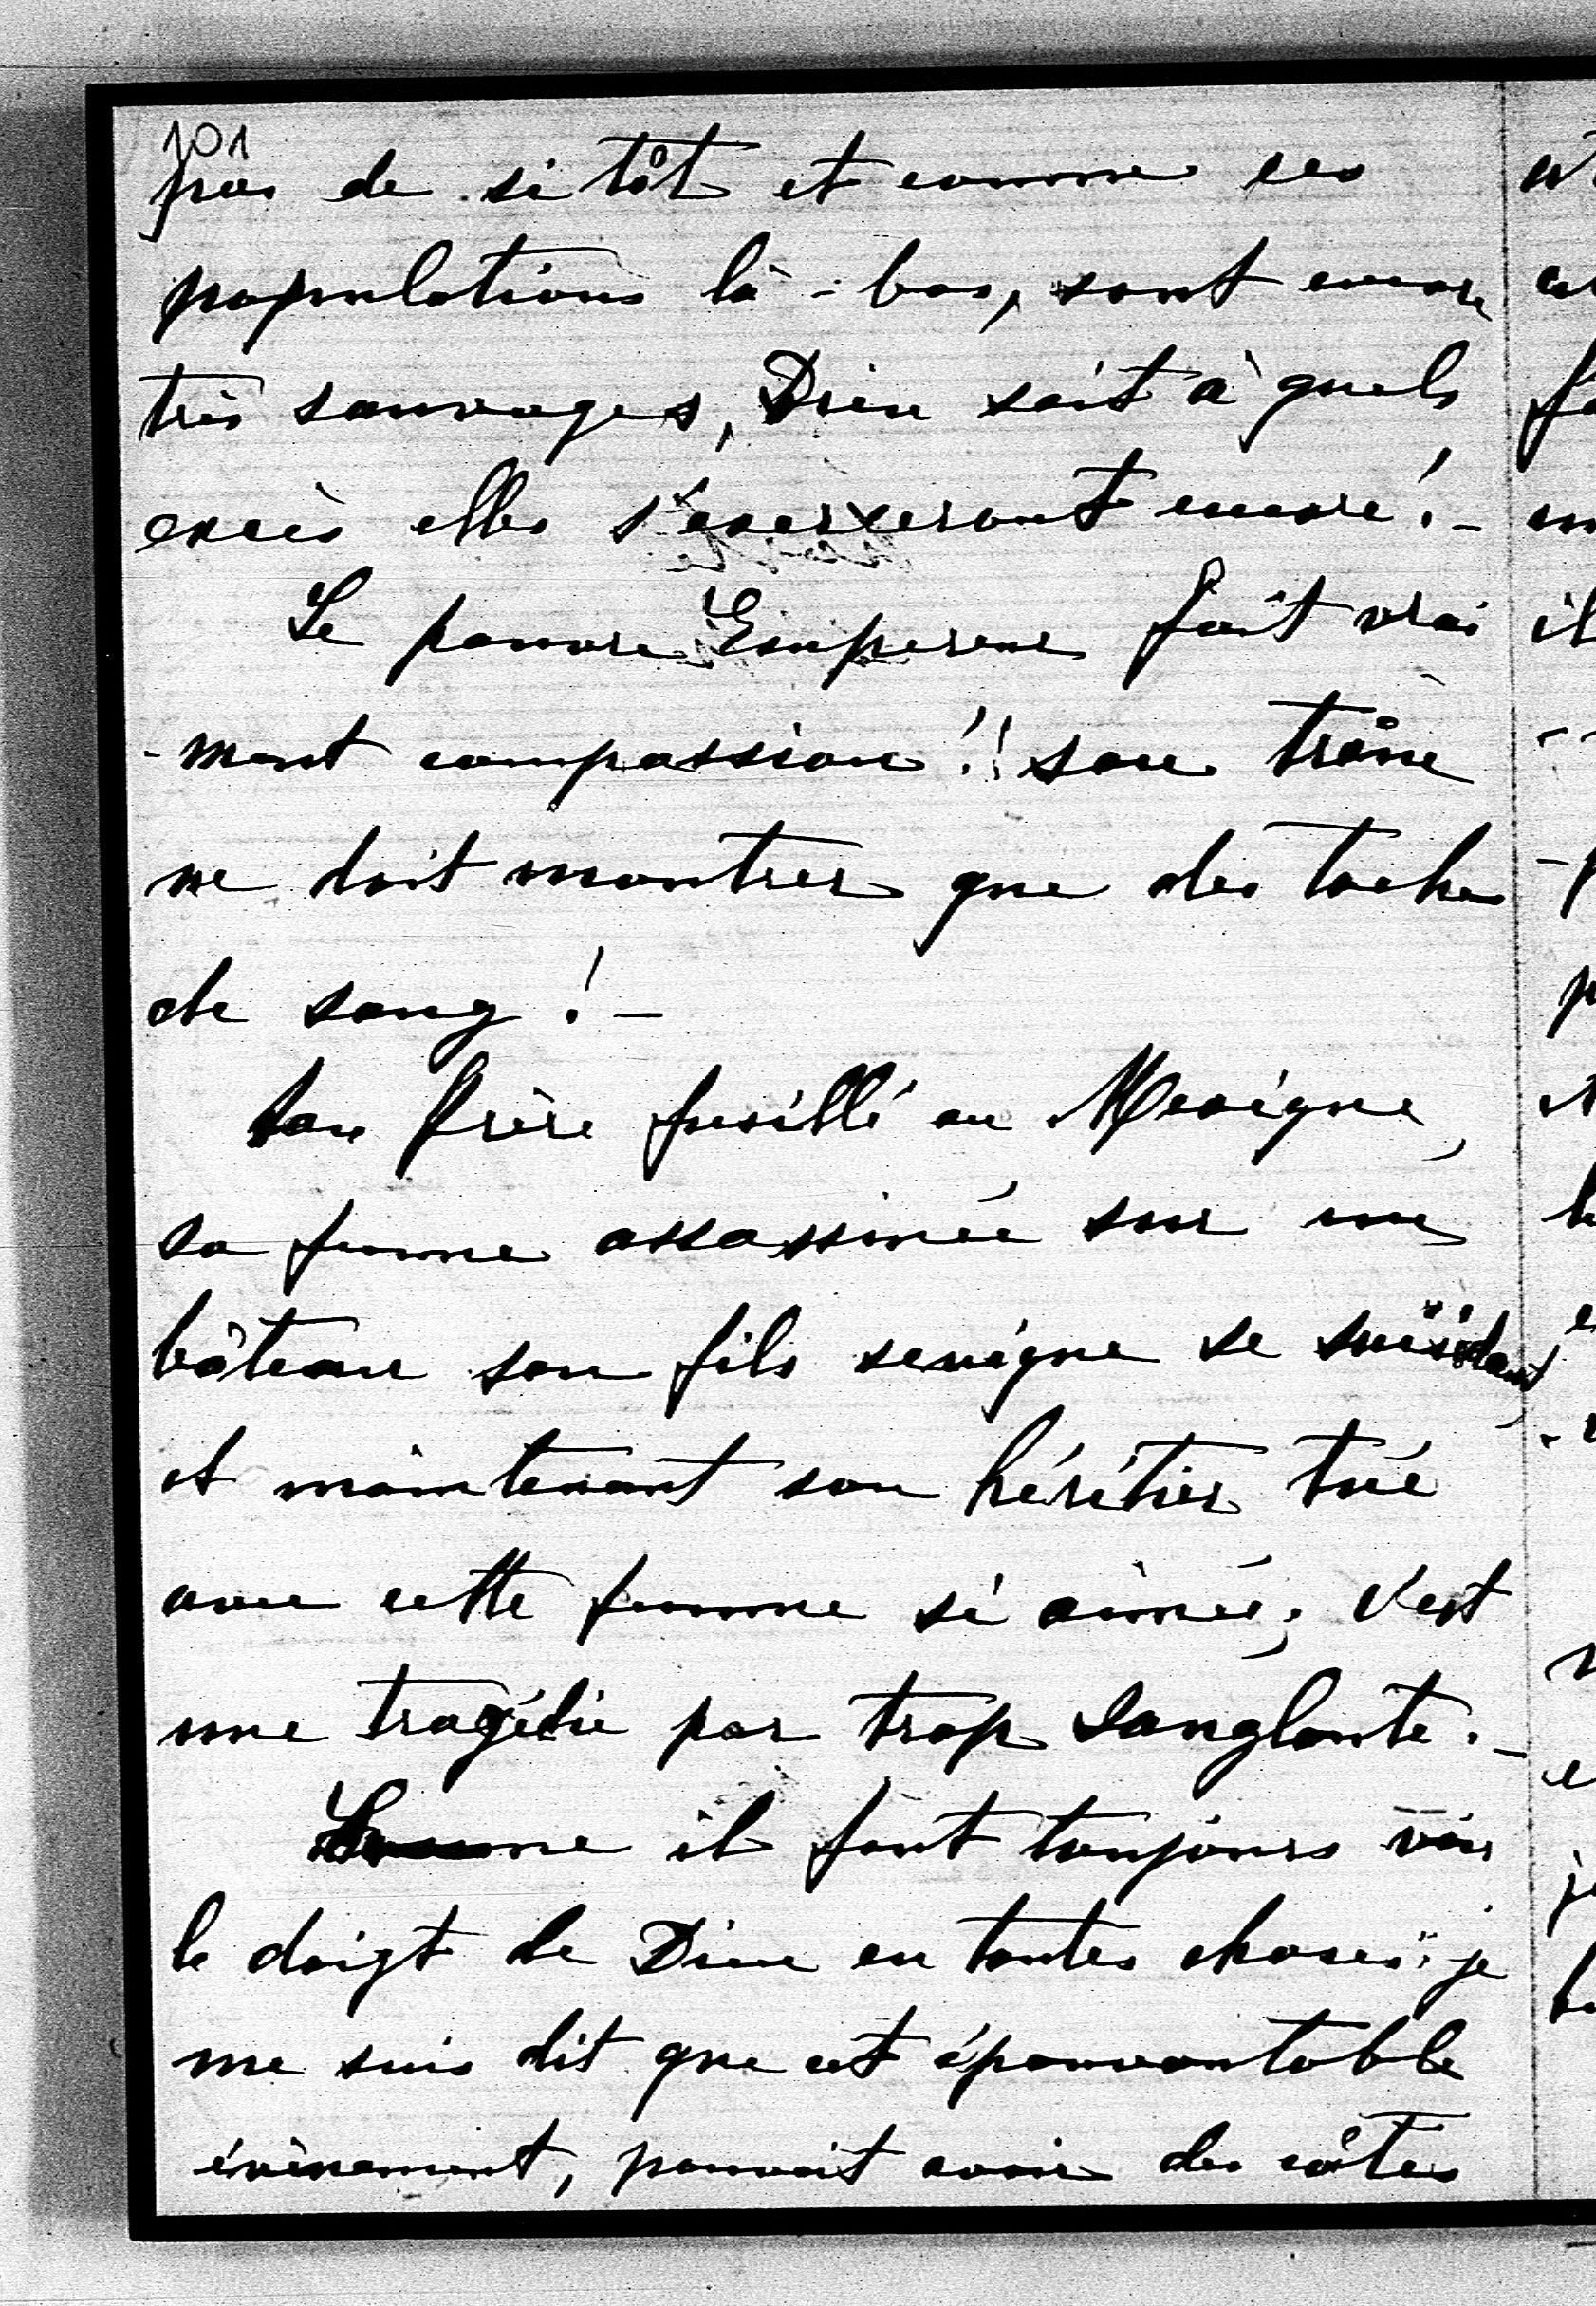 101
pas de si tôt et comme ces
populations là-bas, sont encore
très sauvages, Dieu sait à quels
excès elles s'exerxeront encore!-
Le pauvre Empereur fait vrai
-ment compassion!! son trône
ne doit montrer que des taches
de sang!-
Son frère fusillé au Mexique,
sa femme assassinée sur un
bâteau son fils unique se suicidant,
et maintenant son héritier tué
avec cette femme si aimée; c'est
une tragédie par trop sanglante.-
Comme il faut toujours voir
le doigt de Dieu en toutes choses; je
me suis dit que cet épouvantable
évènement, pouvait avoir des côtes